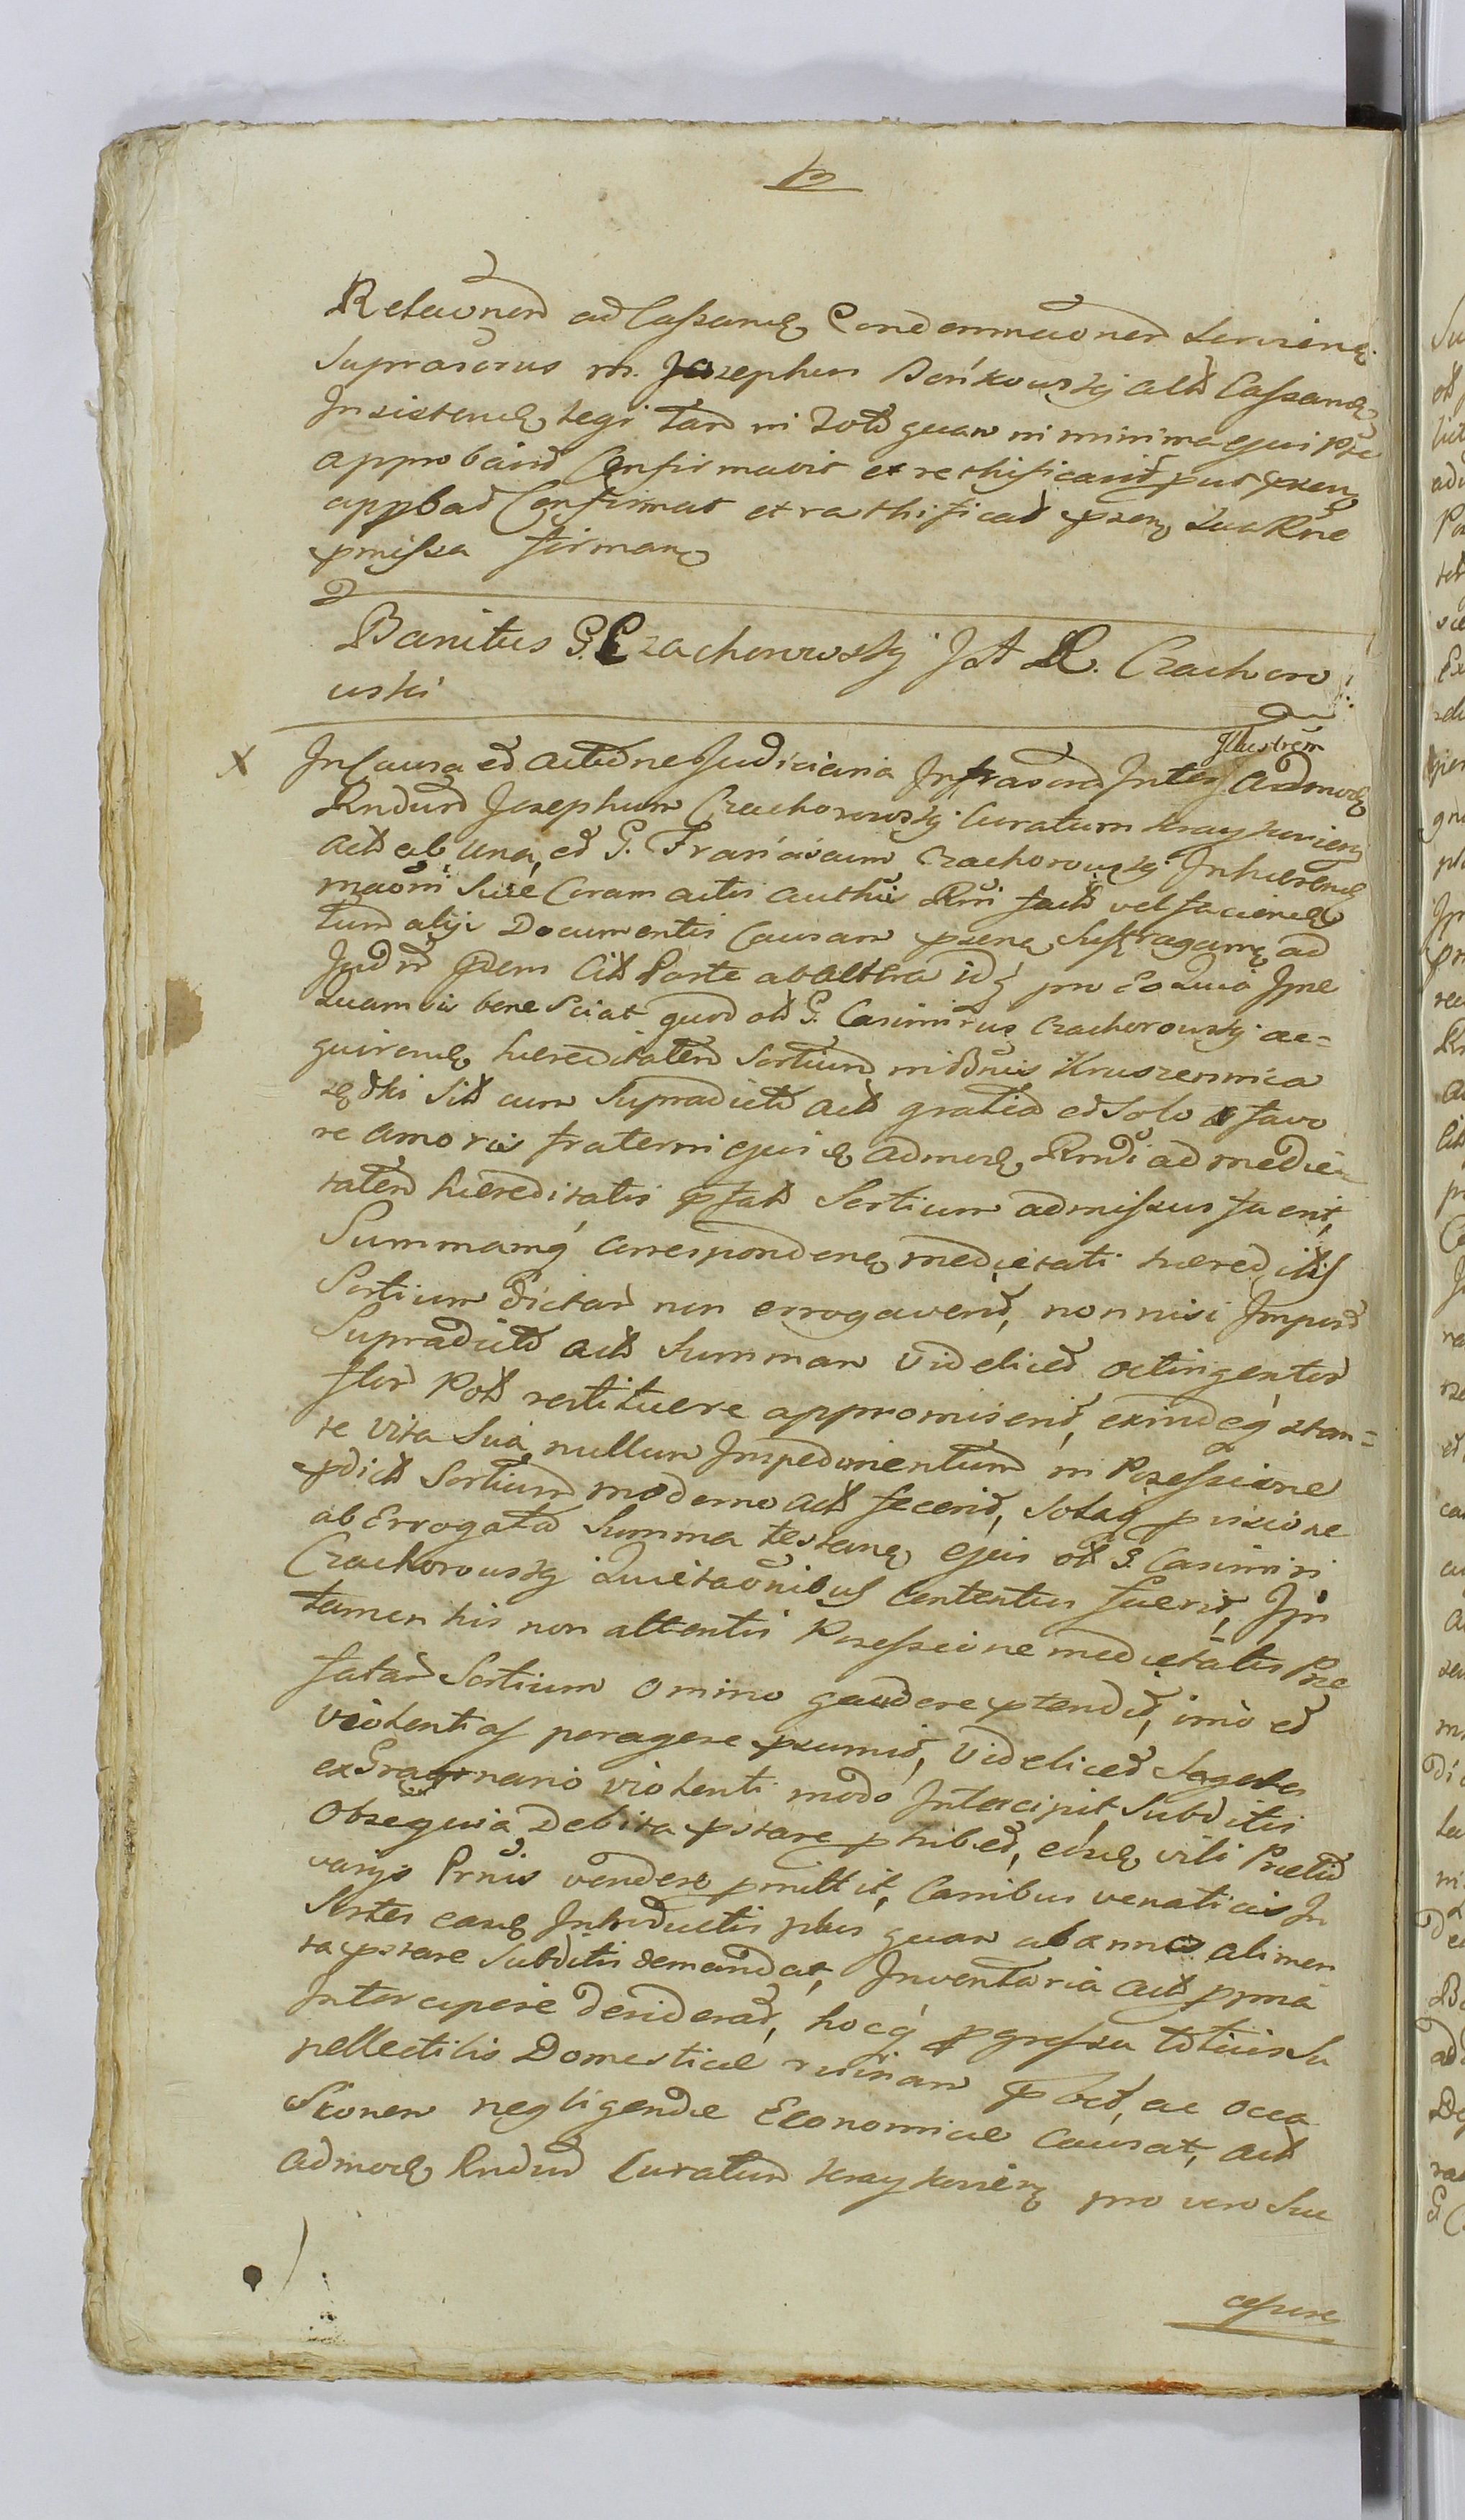 Relaōnem ad Cassand Condemnaōnem servien
Suprascrus m. Josephus Bońkowsky actt Cassand
Insistend legi tam in toto quam in minima ejus pte
approbavit Confirmavit et rathificavit put psen
appbat Confirmat et rathificat psen sua Rne
pmissa firman
Banitus G. Czachorowsky Jst R. Czachoro
wski
X In Causa et actione Judiciaria Infrascrd Inter Illustrem admod
Rndum Josephum Czachorowsky Curatum kraykovien
Actt ab una, et G. Franciscum Czachorowsky Inhaerend
maōni suae Coram actis authi Rni factt vel faciend
tum alijs Documentis Causam psene suffragan ad
Judm psem Citt Parte ab altera idq pro eo Quia Ipse
Quamvis bene sciat quod ott G. Casimirus Czachorowsky ac=
quirend haereditatem Sortium in Bnis Kruszennica
dki Sitt cum Supradicto actt gratia et solo favo
re amoris fraterni ejusd admod Rndi ad medie
tatem haereditatis pfatt Sortium admissus fuerit,
Summamq correspondend medietati haereditis
Sortium dictar non errogaverit, nonnisi
Supradicto actt summam Videlicet octingentor
flor Pott restituere appromiserit, exindeq stan=
te vita sua nullum Impedimentum in Possessione
pdictt Sortium moderno actt fecerit, solaq pvisione
ab Errogata Summa testand ejus ott G. Casimiri
Czachorowsky Quietaōnibus Contentus fuerit, Ips
tamen his non attentis Possessione medietatis Prae
fatar Sortium omino gaudere ptendit, imo et
Violentias peragere psumit, Videlicet segetes
ex Granario violenti modo Intercipit, subditis
Obsequia Debita pstare phibet, eosd vili Pretio
varijs Prnis vendere pmittit, Canibus venaticis In
Sortes easd Introductis plus quam ab annis alimen
ta pstare subditis demandat, Inventaria actt ppria
Intercipere desiderat, hocq pgressu totius su
pellectilis Domesticae ruinam pbet, ac occa
sionem negligendae Economiae Causat, actt
admod Rndum Curatum kraykovien pro vero suc
cessore